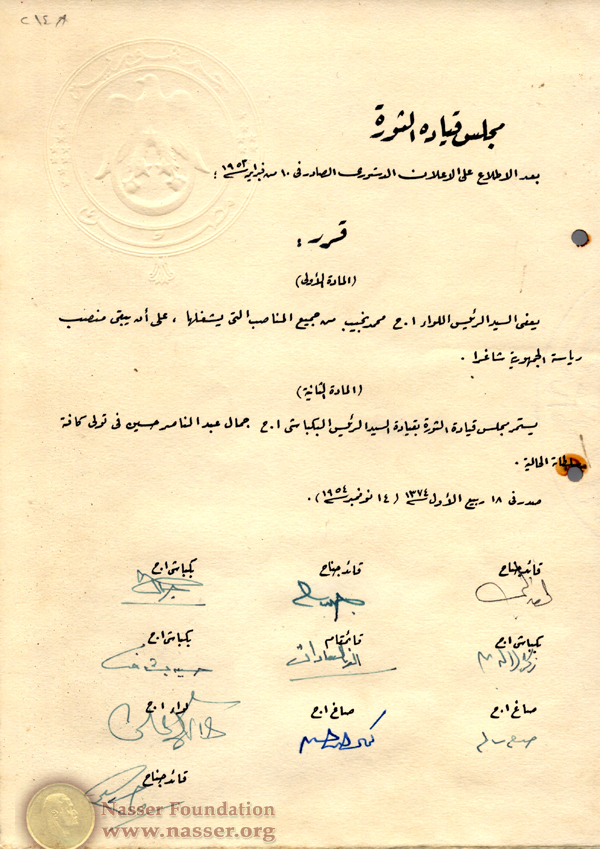 ٢١٤٨
مجلس قيادة الثورة
بعد الاطلاع على الاعلان الدستورى الصادر فى ١٠ من فبراير ١٩٥٣ ؛
قرر :
(المادة الأولى)
يعفى السيد الرئيس اللواء ا.ح محمد نجيب من جميع المناصب التى يشغلها ، على أن يبقى منصب
رياسة الجمهورية شاغرا .
(المادة الثانية)
يستمر مجلس قيادة الثورة بقيادة السيد الرئيس البكباشى ا.ح جمال عبد الناصر حسين فى تولى كافة
سلطاته الحالية .
صدر فى ١٨ ربيع الأول ١٣٧٤ (١٤ نوفمبر ١٩٥٤) .
قائد جناح قائد جناح بكباشى ا.ح
بكباشى ا.ح قائمقام بكباشى ا.ح
أنور السادات
صاغ ا.ح صاغ ا.ح لواء ا.ح
قائد جناح
Nasser Foundation
www.nasser.org